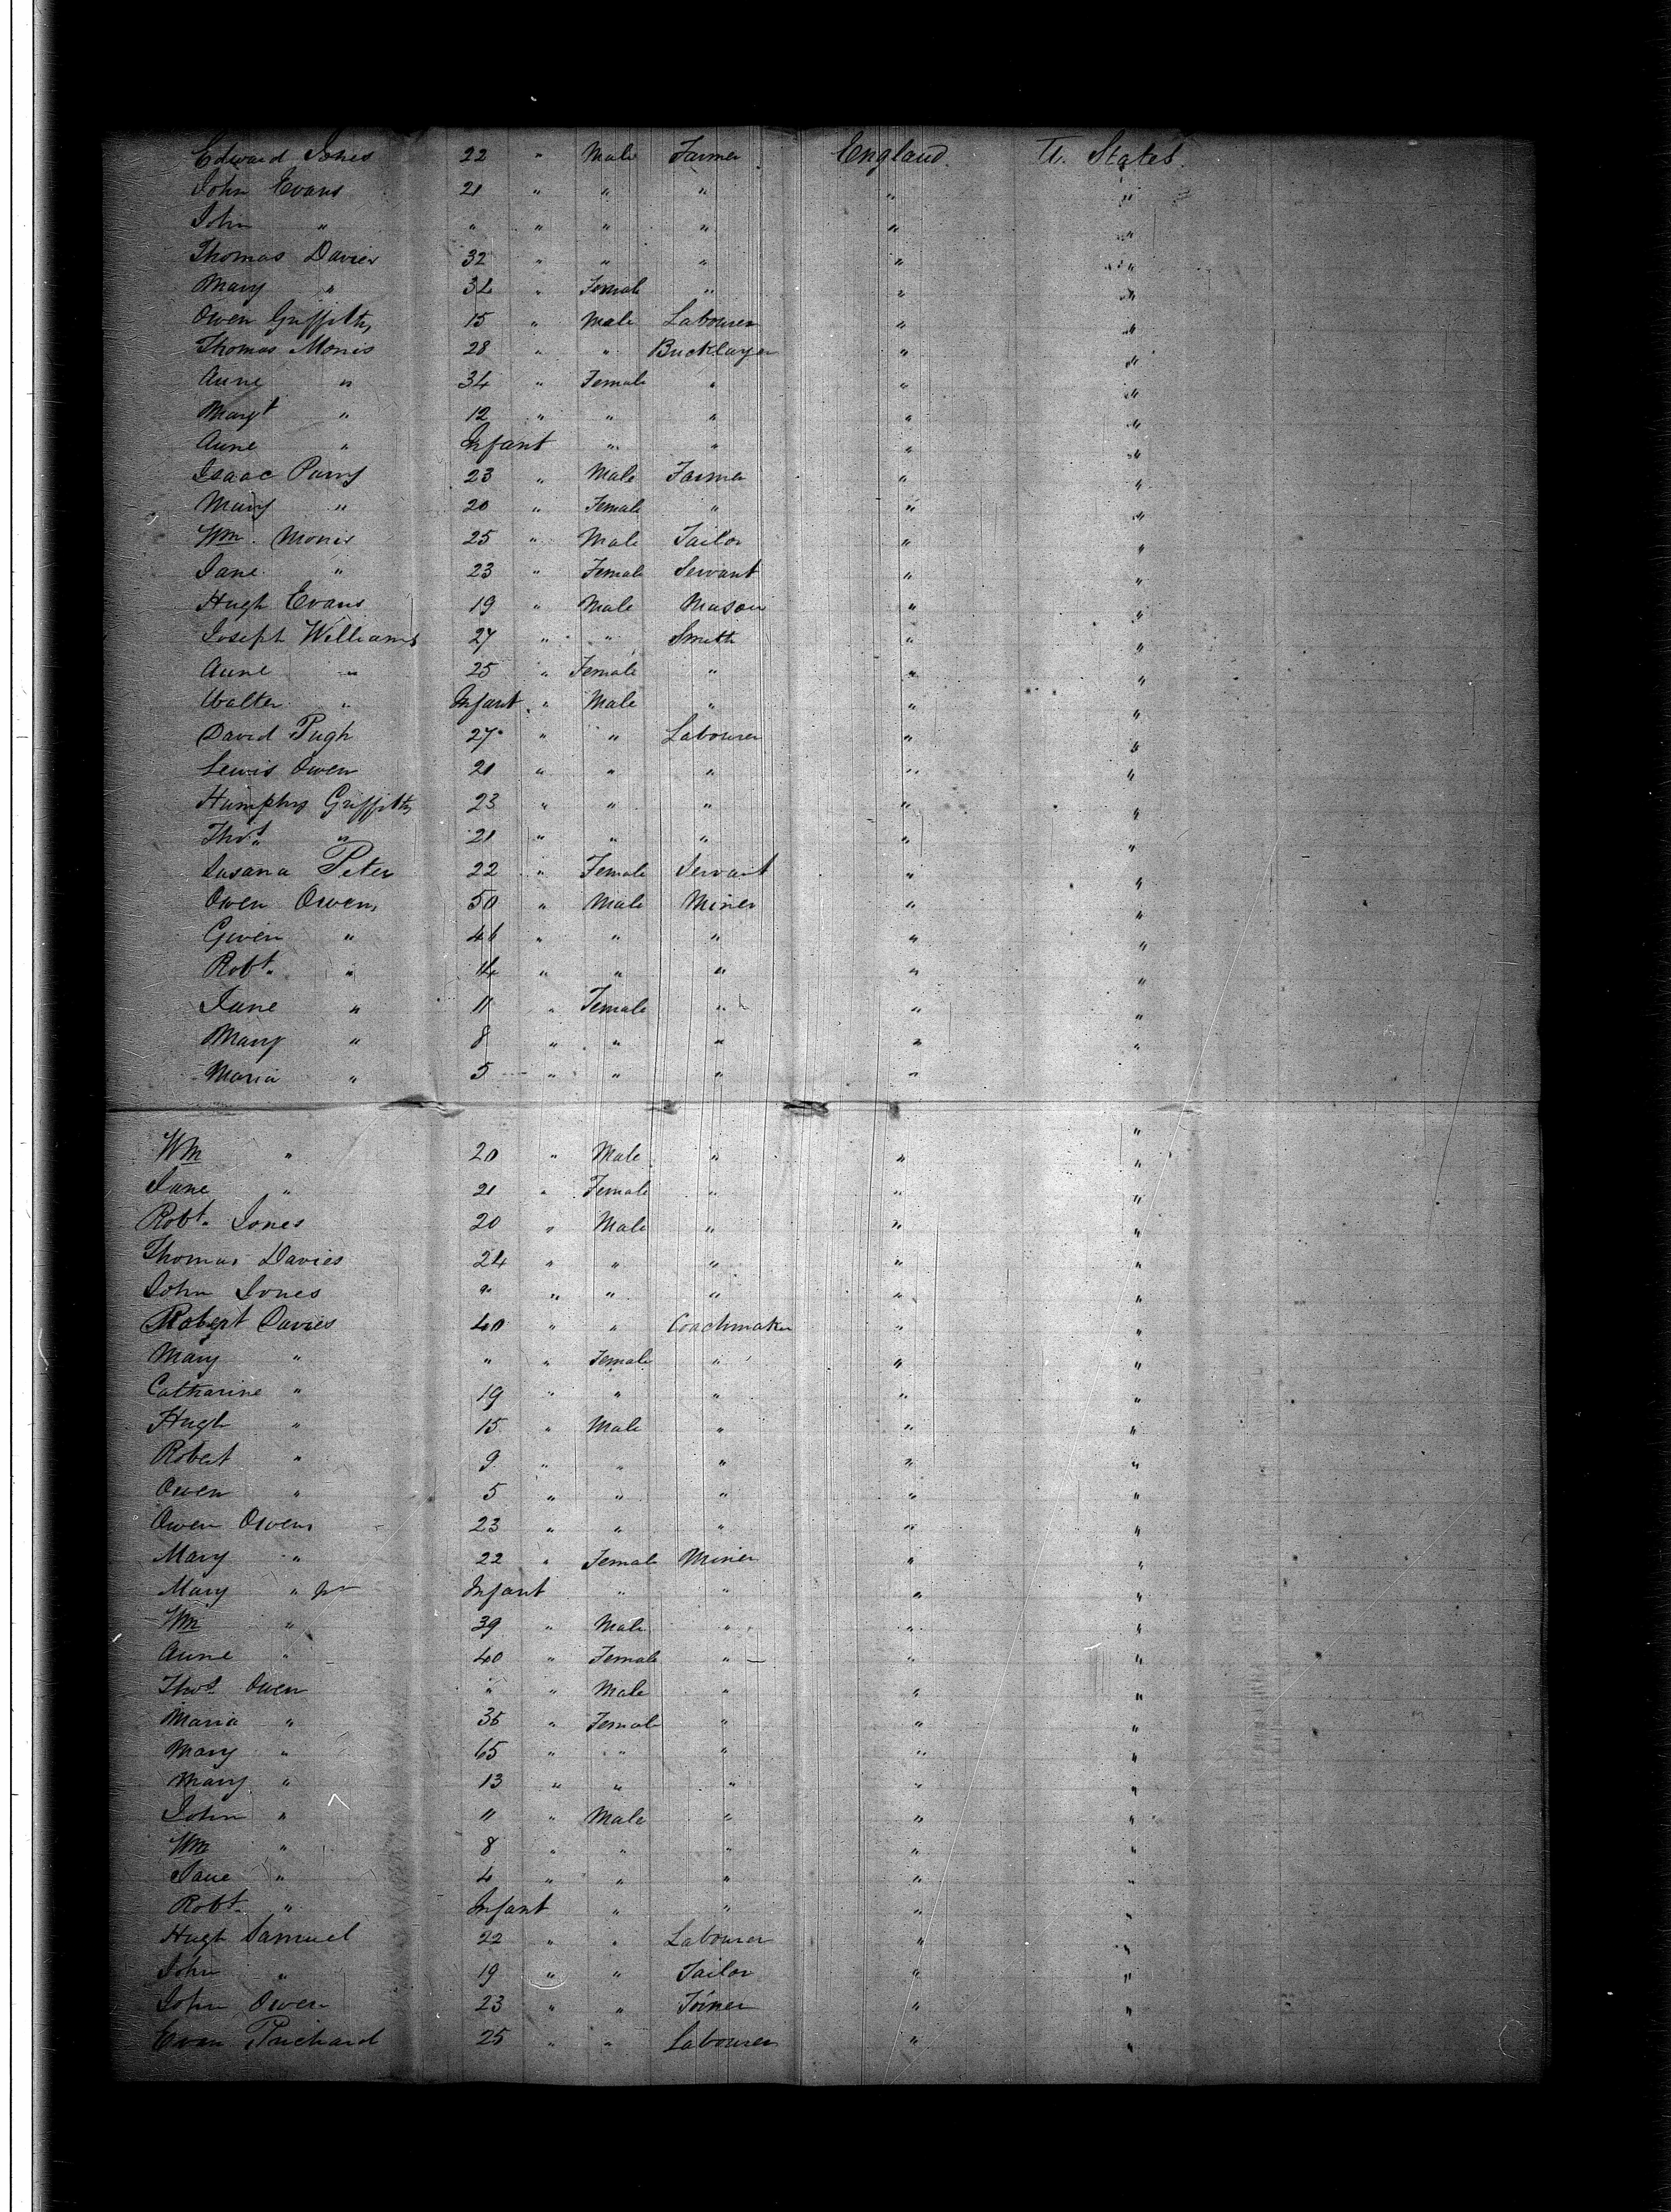 Edward Jones 22 " Male Farmer England U. States
John Evans 21 " " " " "
John " " " " " " "
Thomas Davies 32 " " " " "
Mary " 32 " Female " " "
Owen Griffiths 15 " Male Labourer " "
Thomas Morris 28 " " Bricklayer " "
Anne " 34 " Female " " "
Margt " 12 " " " " "
Anne " Infant " " " "
Isaac Parry 23 " Male Farmer " "
Mary " 20 " Female " " "
Wm. Morris 25 " Male Tailor " "
Jane " 23 " Female Servant " "
Hugh Evans 19 " Male Mason " "
Joseph Williams 27 " " Smith " "
Anne " 25 " Female " " "
Walter " Infant " Male " " "
David Pugh 27 " " Labourer " "
Lewis Owen 21 " " " " "
Humphry Griffiths 23 " " " " "
Thos. " 21 " " " " "
Susana Peter 22 " Female Servant " "
Owen Owens 50 " Male Miner " "
Gwen " 46 " " " " "
Robt. " 14 " " " " "
Jane " 11 " Female " " "
Mary " 8 " " " " "
Maria " 5 " " " " "
Wm " 20 " Male " " "
Jane " 21 " Female " " "
Robt. Jones 20 " Male " " "
Thomas Davies 24 " " " " "
John Jones " " " " " "
Robert Davies 40 " " Coachmaker " "
Mary " " " Female " " "
Catharine " 19 " " " " "
Hugh " 15 " Male " " "
Robert " 9 " " " " "
Owen " 5 " " " " "
Owen Owens 23 " " " " "
Mary " 22 " Female Miner " "
Mary " Jr Infant " " " "
Wm " 39 " Male " " "
Anne " 40 " Female " " "
Thos. Owen " " Male " " "
Maria " 35 " Female " " "
Mary " 65 " " " " "
Mary " 13 " " " " "
John " 11 " Male " " "
Wm " 8 " " " " "
Jane " 4 " " " " "
Robt. " Infant " " " "
Hugh Samuel 22 " " Labourer " "
John " 19 " " Tailor " "
John Owen 23 " " Joiner " "
Evan Prichard 25 " " Labourer " "